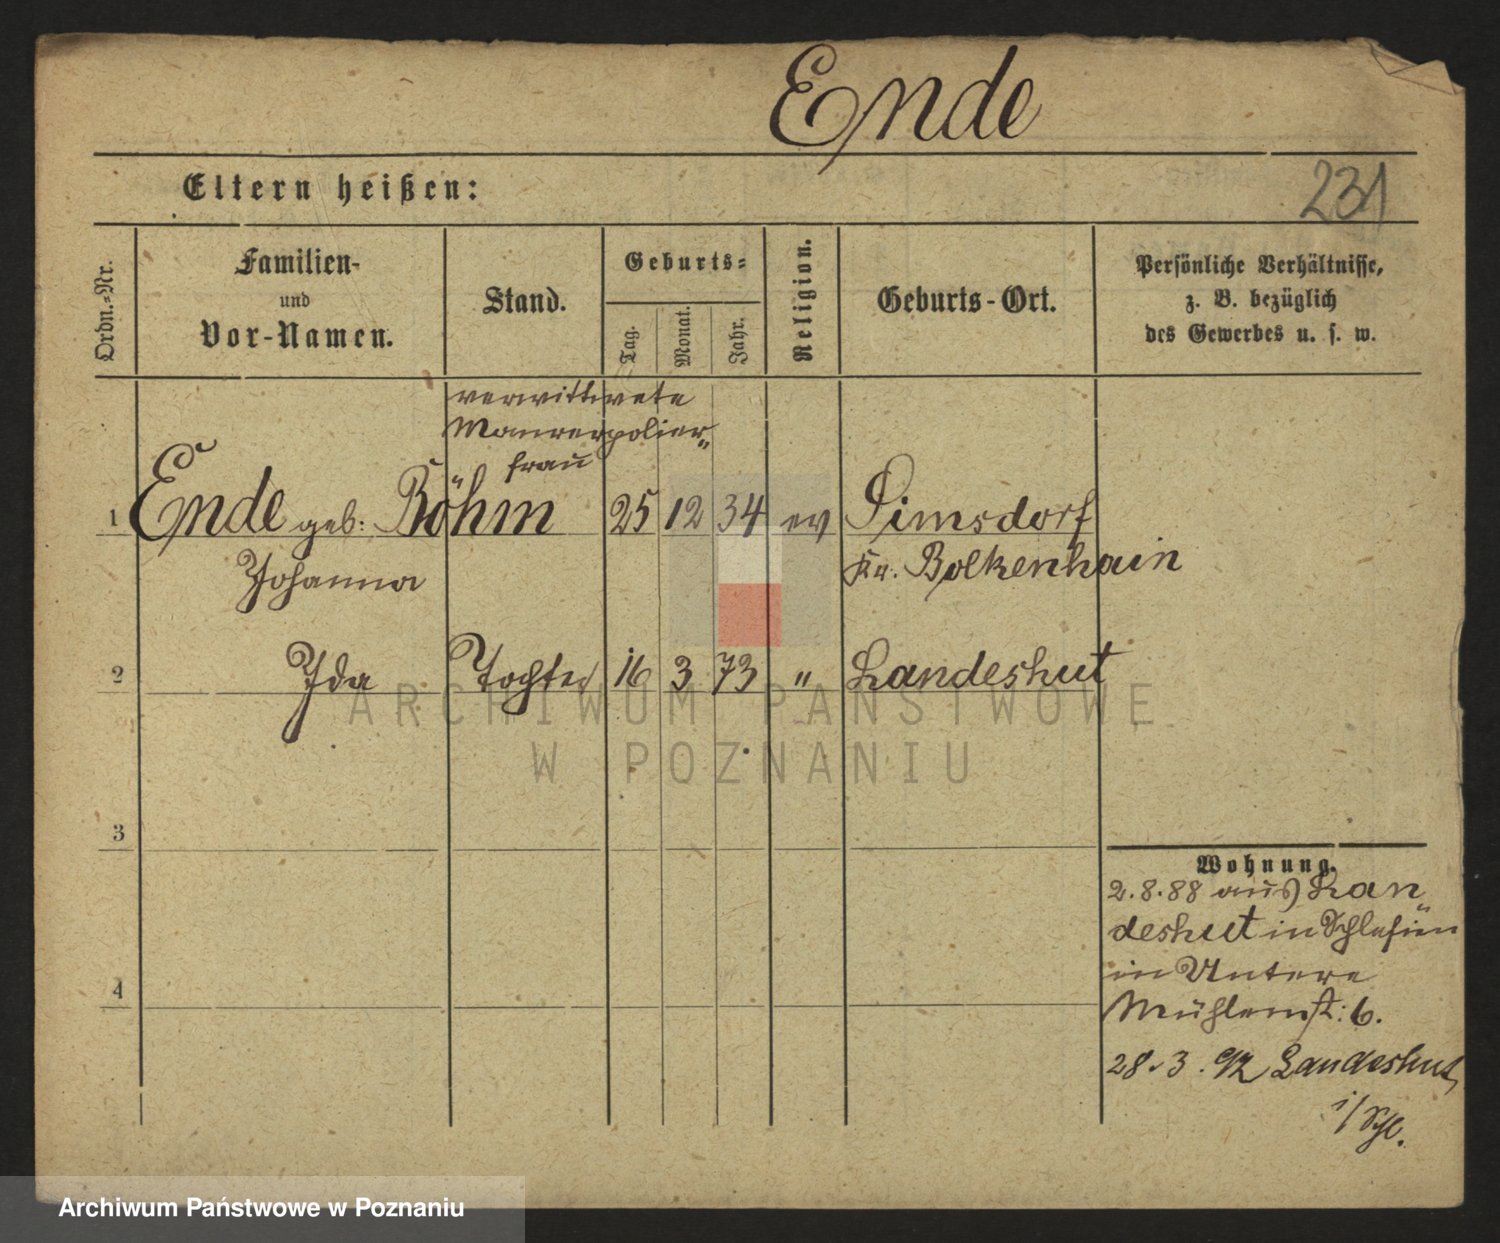 Ende
Eltern heißen:
231
Ordn.-Nr.
Familien-
und
Vor-Namen.
Stand.
Geburts-
Tag.
Monat.
Jahr.
Religion.
Geburts-Ort.
Persönliche Verhältnisse,
z. B. bezüglich
des Gewerbes u. s. w.
verwittwete
Maurerpolier-
frau
1 Ende geb: Böhm 25 12 34 ev Pimsdorf
Johanna Kr. Bolkenhain
2 Ida Tochter 16 3 73 " Landeshut
ARCHIWUM PAŃSTWOWE
W POZNANIU
3
Wohnung.
2.8.88 aus Lan
deshut in Schlesien
in Untere
4
Mühlenst: 6.
28.3.92 Landeshut
i/Schl.
Archiwum Państwowe w Poznaniu